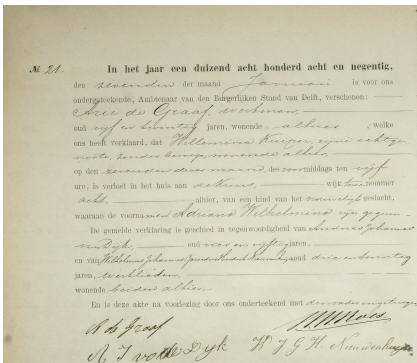 № 21.
In het jaar een duizend acht honderd acht en negentig,
den zevenden der maand Januari is voor ons
ondergeteekende, Ambtenaar van den Burgerlijken Stand van Delft, verschenen:
Arie de Graaf, werkman,
oud vijf en twintig jaren, wonende alhier, welke
ons heeft verklaard, dat Willemina Kuiper, zijne echtge-
noote, zonder beroep, wonende alhier,
op den zevenden dezer maand, des voormiddags ten vijf
ure, is verlost in het huis aan wijk twee nommer
acht, alhier, van een kind van het vrouwelijk geslacht,
waaraan de voornamen Adriana Wilhelmina zijn gegeven.
De gemelde verklaring is geschied in tegenwoordigheid van Andries Johannes
van Dijk, oud zes en vijftig jaren,
en van Wilhelmus oud drie en twintig
jaren, werklieden,
wonende beiden alhier.
En is deze akte na voorlezing door ons onderteekend met
A de Graaf
A J van Dijk W J G H Nieuwenhuijzen